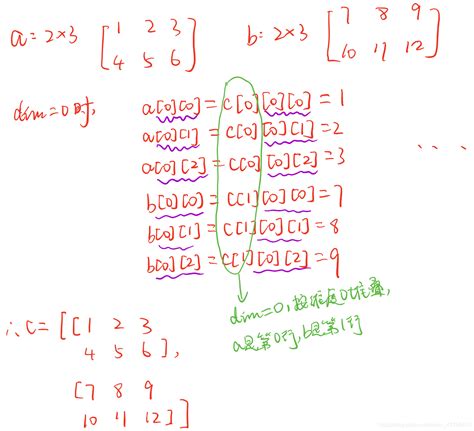 a: 2×3 [1 2 3 b: 2×3 [7 8 9
4 5 6] 10 11 12]
dim=0时,
a[0][0] = c[0][0][0] = 1
a[0][1] = c[0][0][1] = 2
a[0][2] = c[0][0][2] = 3
b[0][0] = c[1][0][0] = 7
b[0][1] = c[1][0][1] = 8
b[0][2] = c[1][0][2] = 9
....
dim=0,按维度0堆叠,
a是第0行,b是第1行
∴ c = [[1 2 3
4 5 6],
[7 8 9
10 11 12]]